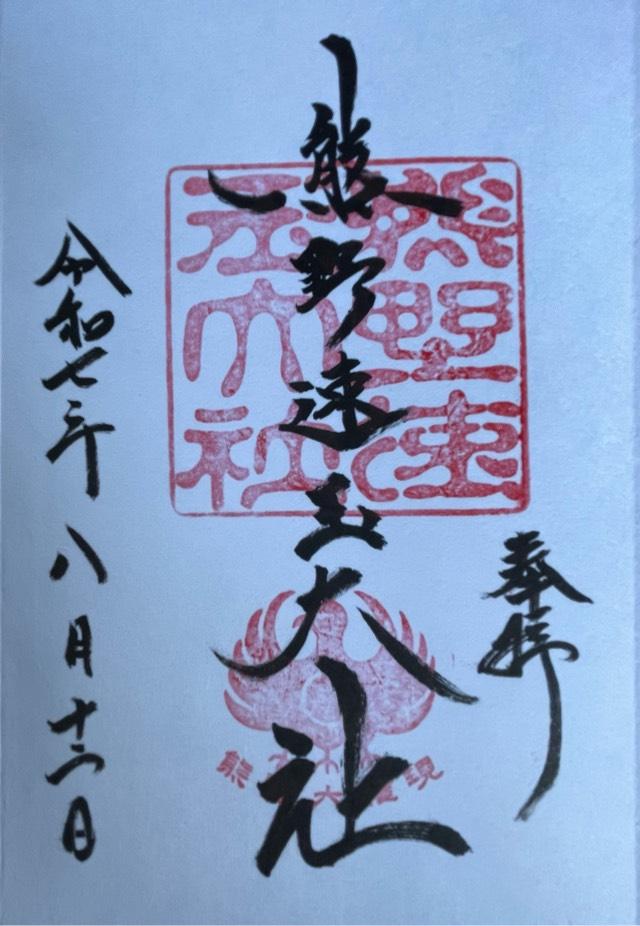 奉拝
熊野速
玉大社
熊野速玉大社
令和七年八月十二日